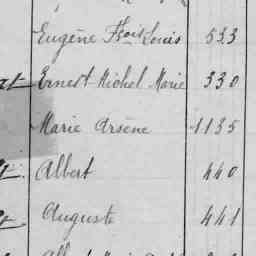 Eugène Fçois Louis 533
Ernest Michel Marie 330
Marie Arsène 1135
Albert 440
Auguste 441